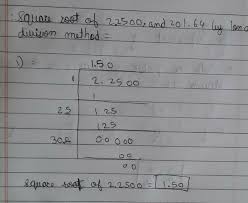 Square root of 2.2500, and 201.64 by long
division method =
1) = 1.50
1 2.2500
1
25 125
125
300 00000
00
00
square root of 2.2500 = 1.50